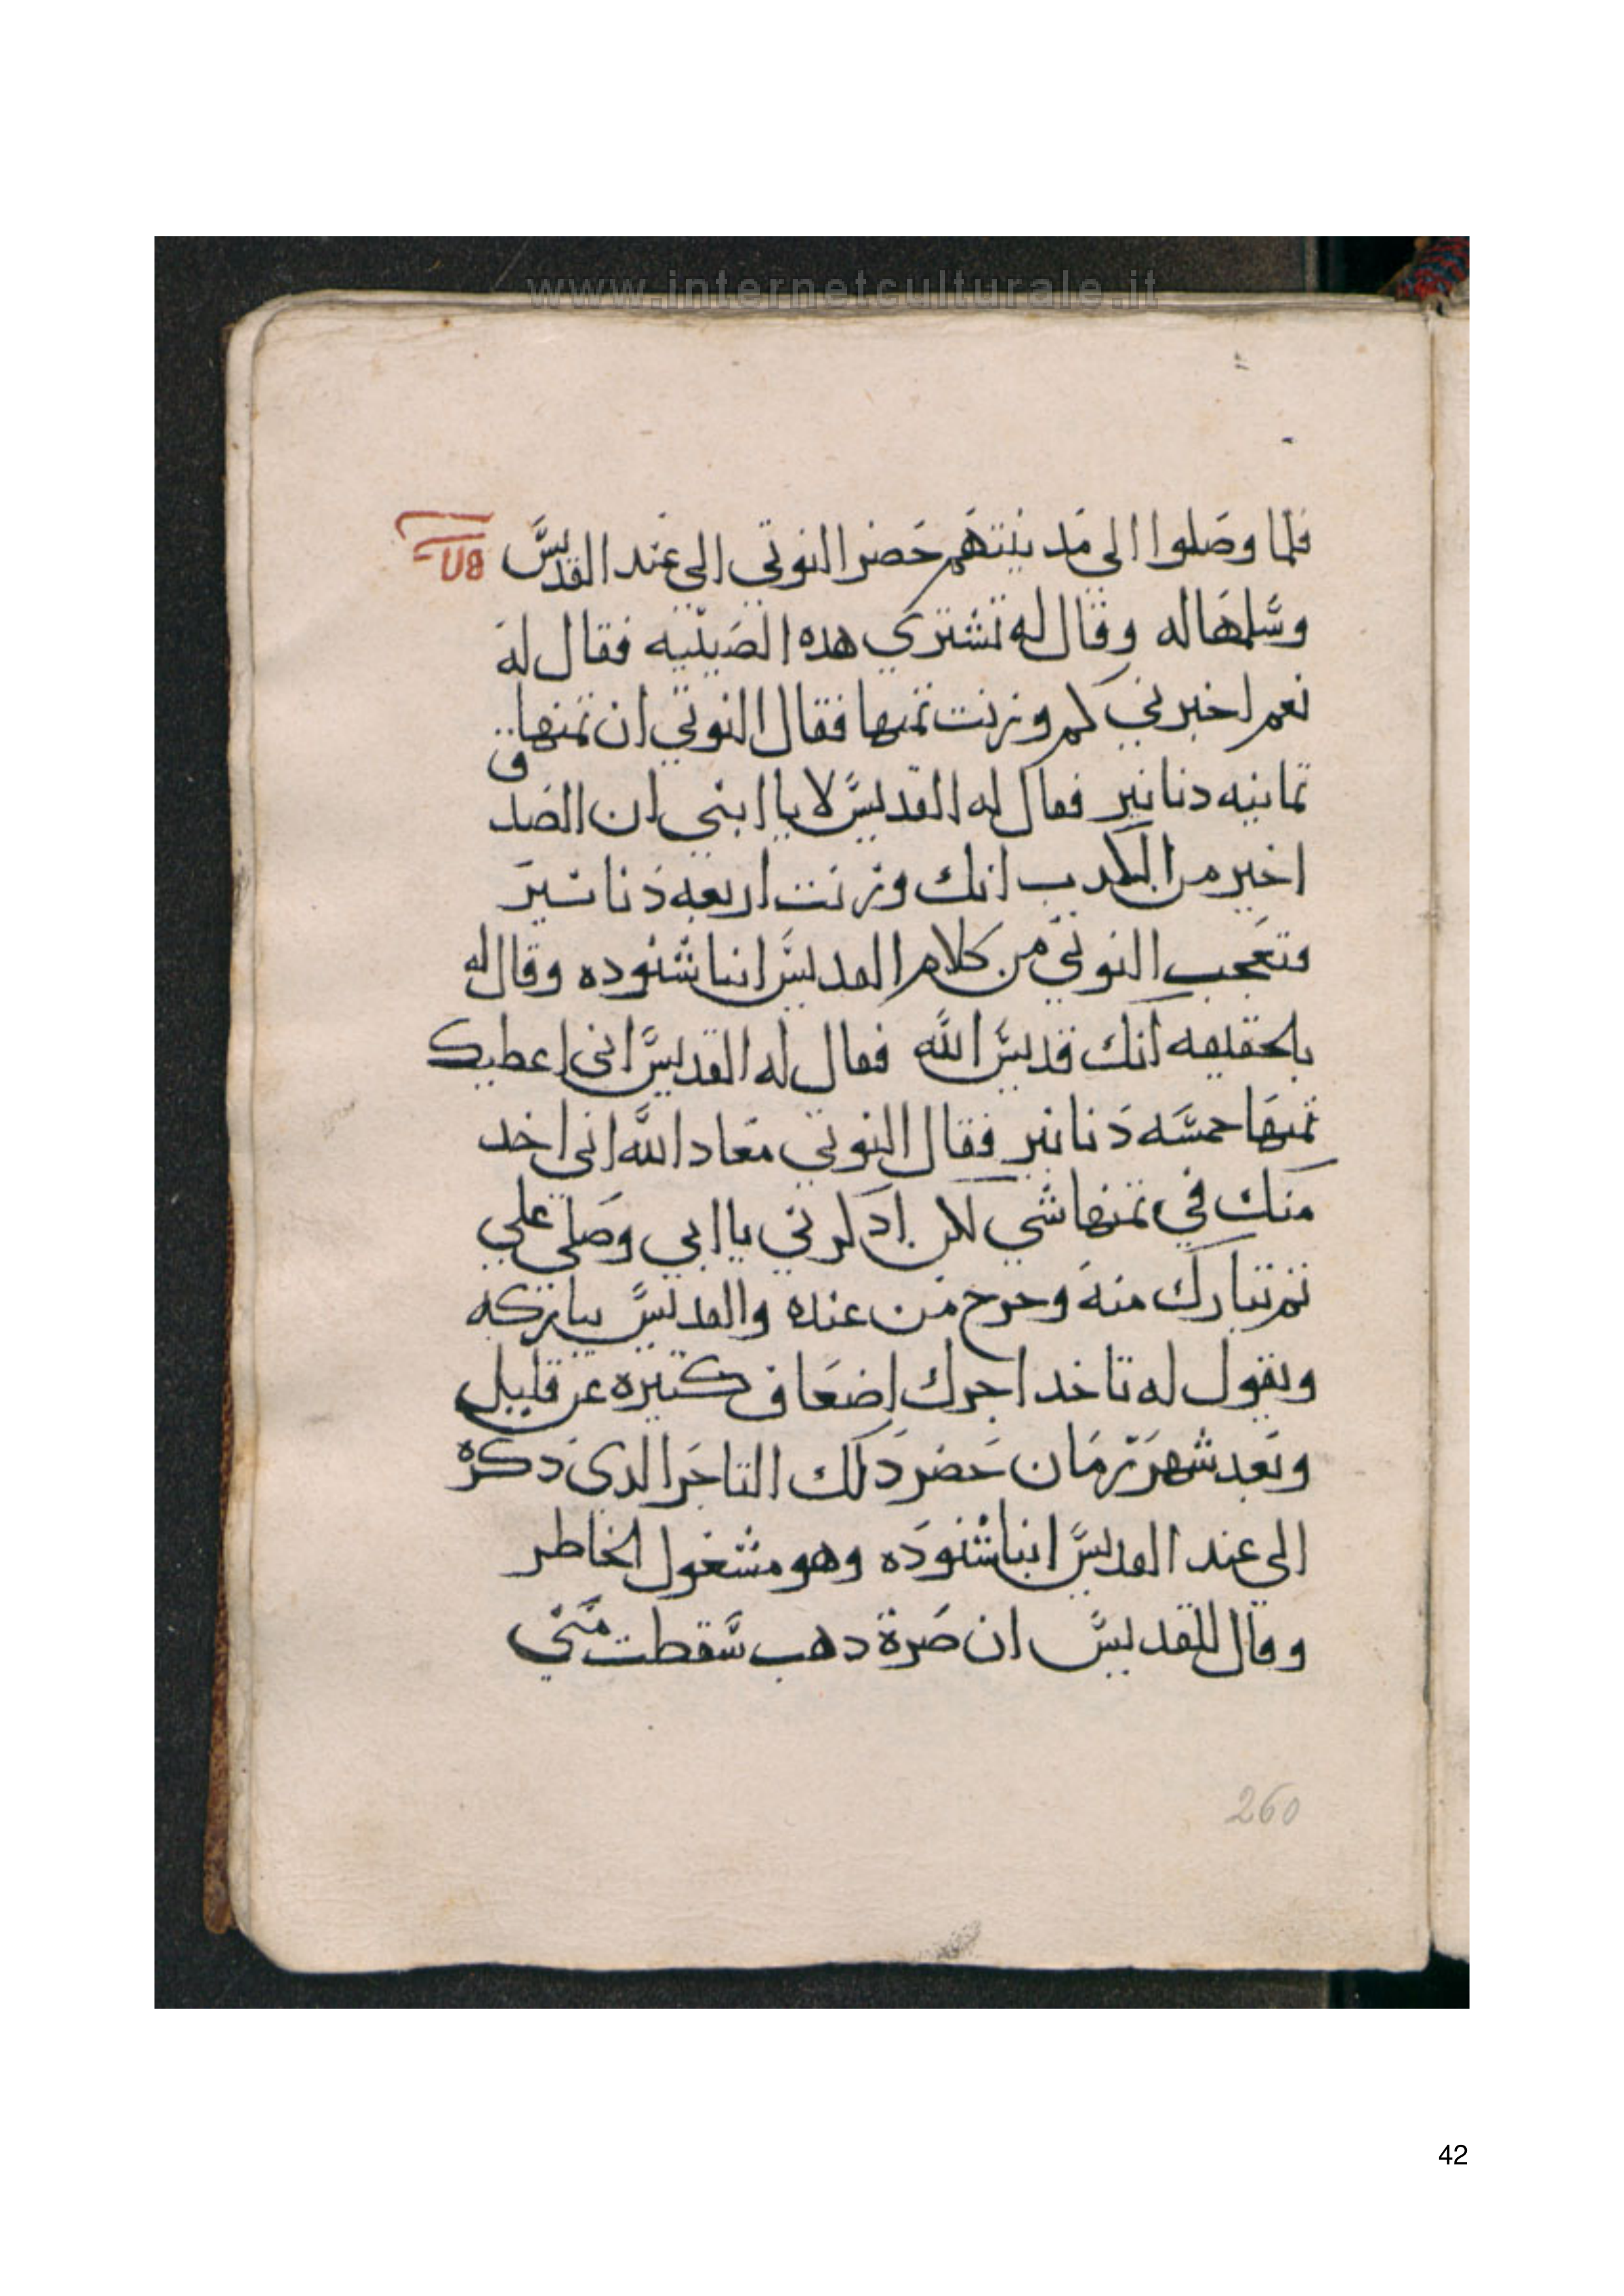 www.internetculturale.it
فلما وصلوا الى مدينتهم حضر النوتي الى عند القديس
وسلمها له وقال له تشتري هده الصينيه فقال له
نعم اخبرني كم وزنت تمنها فقال النوتي ان تمنها
تمانيه دنانير فقال له القديس لا يا ابني ان الصدق
اخير من الكدب انك وزنت اربعه دنانير
فتعجب النوتي من كلام القديس انبا شنوده وقال له
بالحقيقه انك قديس الله فقال له القديس اني اعطيك
تمنها خمسه دنانير فقال النوتي معاد الله اني اخد
منك في تمنها شي لكن ادكرني يا ابي وصلي علي
تم تبارك منه وخرج من عنده والقديس يباركه
ويقول له تاخد اجرك اضعاف كتيره عن قليل
وبعد شهر زمان حضر دلك التاجر الدي دكره
الى عند القديس انبا شنوده وهو مشغول الخاطر
وقال للقديس ان صرة دهب سقطت مني
260
42